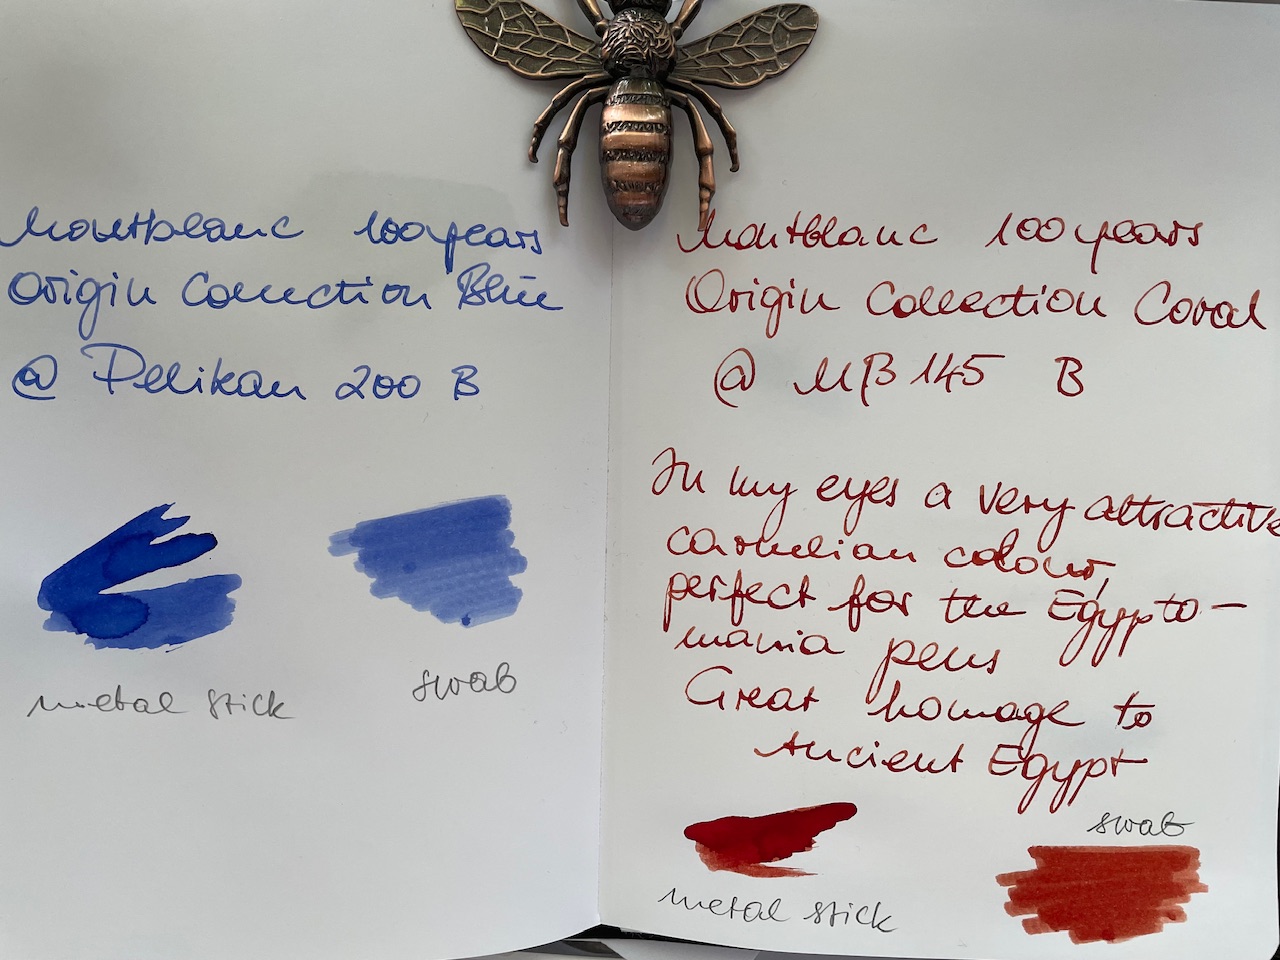 Montblanc 100 years
Origin Collection Blue
@ Pelikan 200 B
metal stick
swab
Montblanc 100 years
Origin Collection Coral
@ MB 145 B
In my eyes a very attractive
carnelian colour,
perfect for the Egypto-
mania pens
Great homage to
Ancient Egypt
swab
metal stick